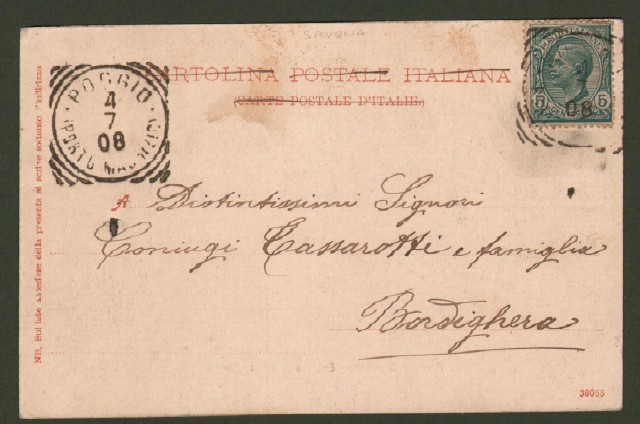 SAVONA
CARTOLINA POSTALE ITALIANA
(CARTE POSTALE D'ITALIE)
POGGIO
4
7
08
(PORTO MAURIZIO)
5 5
08
A Distintissimi Signori
Coniugi Cassarotti e famiglia
Bordighera
NB. Sul lato anteriore della presente si scrive soltanto l'indirizzo
38055